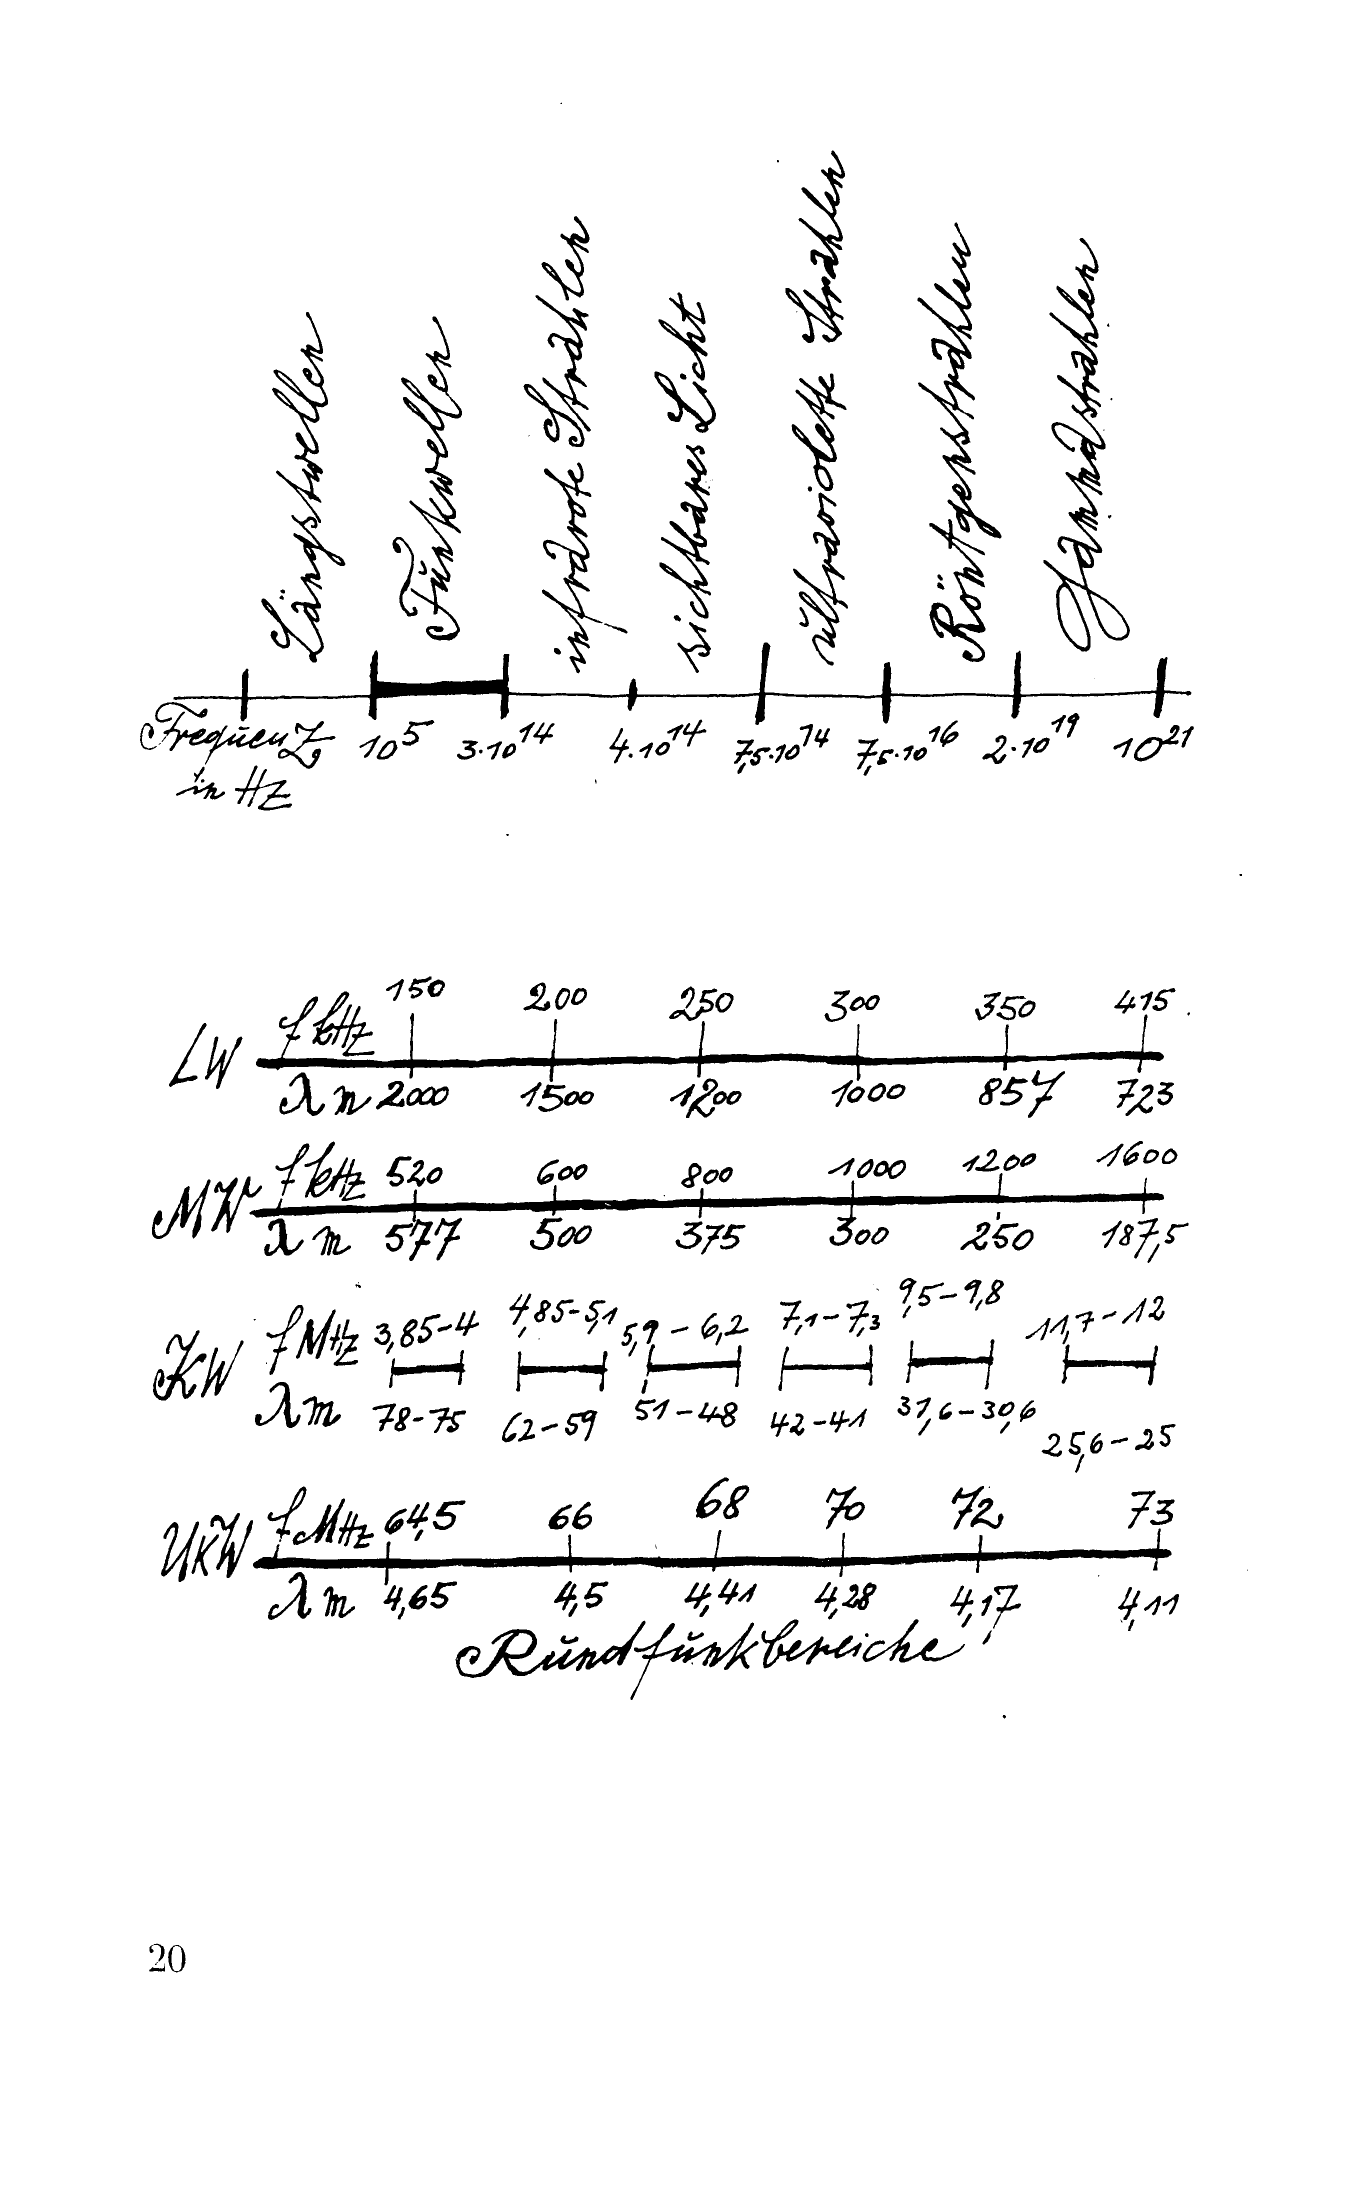 Längstwellen
Funkwellen
infrarote Strahlen
sichtbares Licht
ultraviolette Strahlen
Röntgenstrahlen
Gammastrahlen
Frequenz 10⁵ 3·10¹⁴ 4·10¹⁴ 7,5·10¹⁴ 7,5·10¹⁶ 2·10¹⁹ 10²¹
in Hz
150 200 250 300 350 415
LW f kHz
λ m 2000 1500 1200 1000 857 723
f kHz 520 600 800 1000 1200 1600
MW
λ m 577 500 375 300 250 187,5
f MHz 3,85-4 4,85-5,1 5,9-6,2 7,1-7,3 9,5-9,8 11,7-12
KW
λ m 78-75 62-59 51-48 42-41 31,6-30,6 25,6-25
f MHz 64,5 66 68 70 72 73
UKW
λ m 4,65 4,5 4,41 4,28 4,17 4,11
Rundfunkbereiche
20